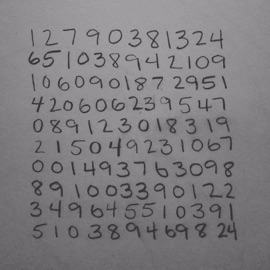 12790381324
651038942109
1060901872951
420606239547
089123018319
215049231067
001493763098
891003390122
349645510391
510389469824